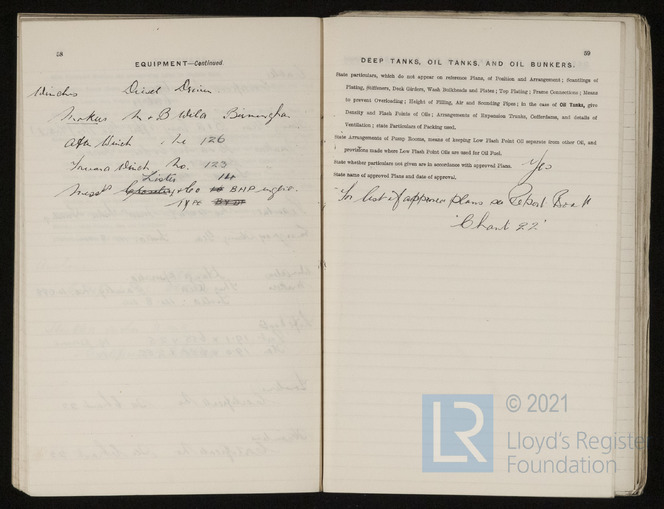 58
EQUIPMENT—Continued.
Winches Diesel Driven
Makers M & B Wild Birmingham
After Winch No 126
Forward Winch No. 123
Lister
& Co BHP engine.
TYPE
59
DEEP TANKS, OIL TANKS, AND OIL BUNKERS.
State particulars, which do not appear on reference Plans, of Position and Arrangement; Scantlings of
Plating, Stiffeners, Deck Girders, Wash Bulkheads and Plates; Top Plating; Frame Connections; Means
to prevent Overloading; Height of Filling, Air and Sounding Pipes; in the case of Oil Tanks, give
Density and Flash Points of Oils; Arrangements of Expansion Trunks, Cofferdams, and details of
Ventilation; state Particulars of Packing used.
State Arrangements of Pump Rooms, means of keeping Low Flash Point Oil separate from other Oil, and
provisions made where Low Flash Point Oils are used for Oil Fuel.
State whether particulars not given are in accordance with approved Plans. Yes
State name of approved Plans and date of approval.
For list of approved plans see Report Book
"Chant 22"
© 2021
LR
Lloyd's Register
Foundation